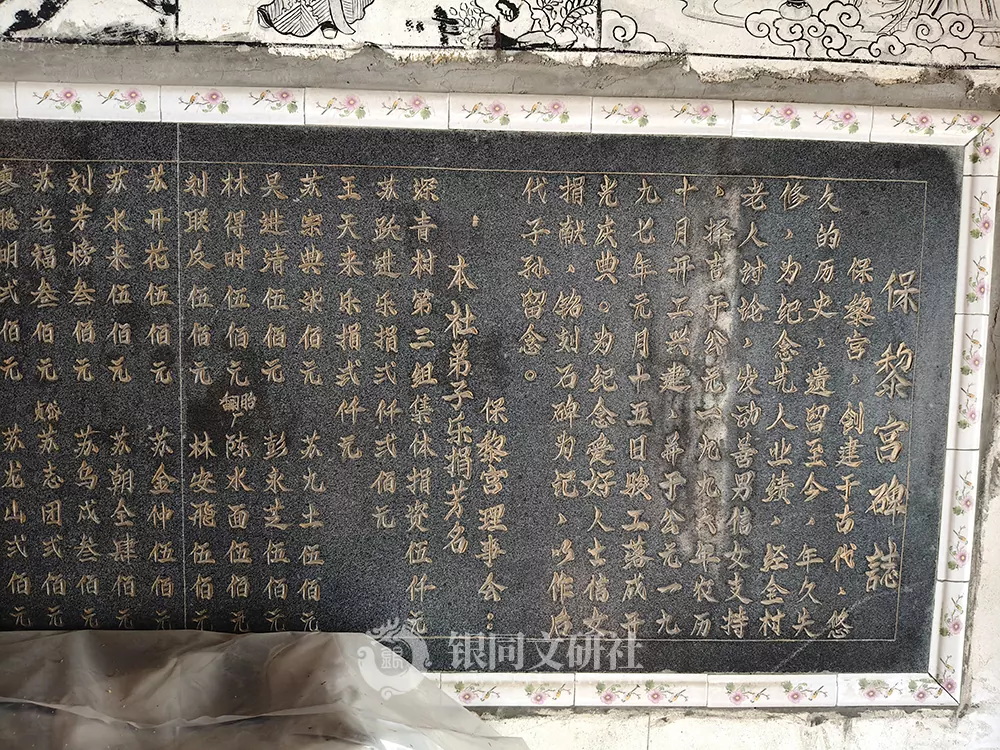 保黎宫碑誌
保黎宫、创建于古代、悠
久的历史、遗留至今、年久失
修、为纪念先人业绩、经全村
老人讨论、发动善男信女支持
、择吉于公元一九九六年农历
十月开工兴建、并于公元一九
九七年元月十五日骏工落成开
光庆典。为纪念爱好人士信女
捐献、铭刻石碑为记、以作后
代子孙留念。
保黎宫理事会：
本社弟子乐捐芳名
深青村第二组集体捐资伍仟元
苏跃进乐捐弍仟弍佰元
王天来乐捐弍仟元
苏崇典柒佰元 苏九土伍佰元
吴进靖伍佰元 彭永芝伍佰元
林得时伍佰元 陈水面伍佰元
刘联反伍佰元 林安殖伍佰元
苏开花伍佰元 苏金仲伍佰元
苏水来伍佰元 苏朝全肆佰元
刘芳榜叁佰元 苏乌成叁佰元
苏老福叁佰元 苏志团弍佰元
廖聪明弍佰元 苏龙山弍佰元
银同文研社